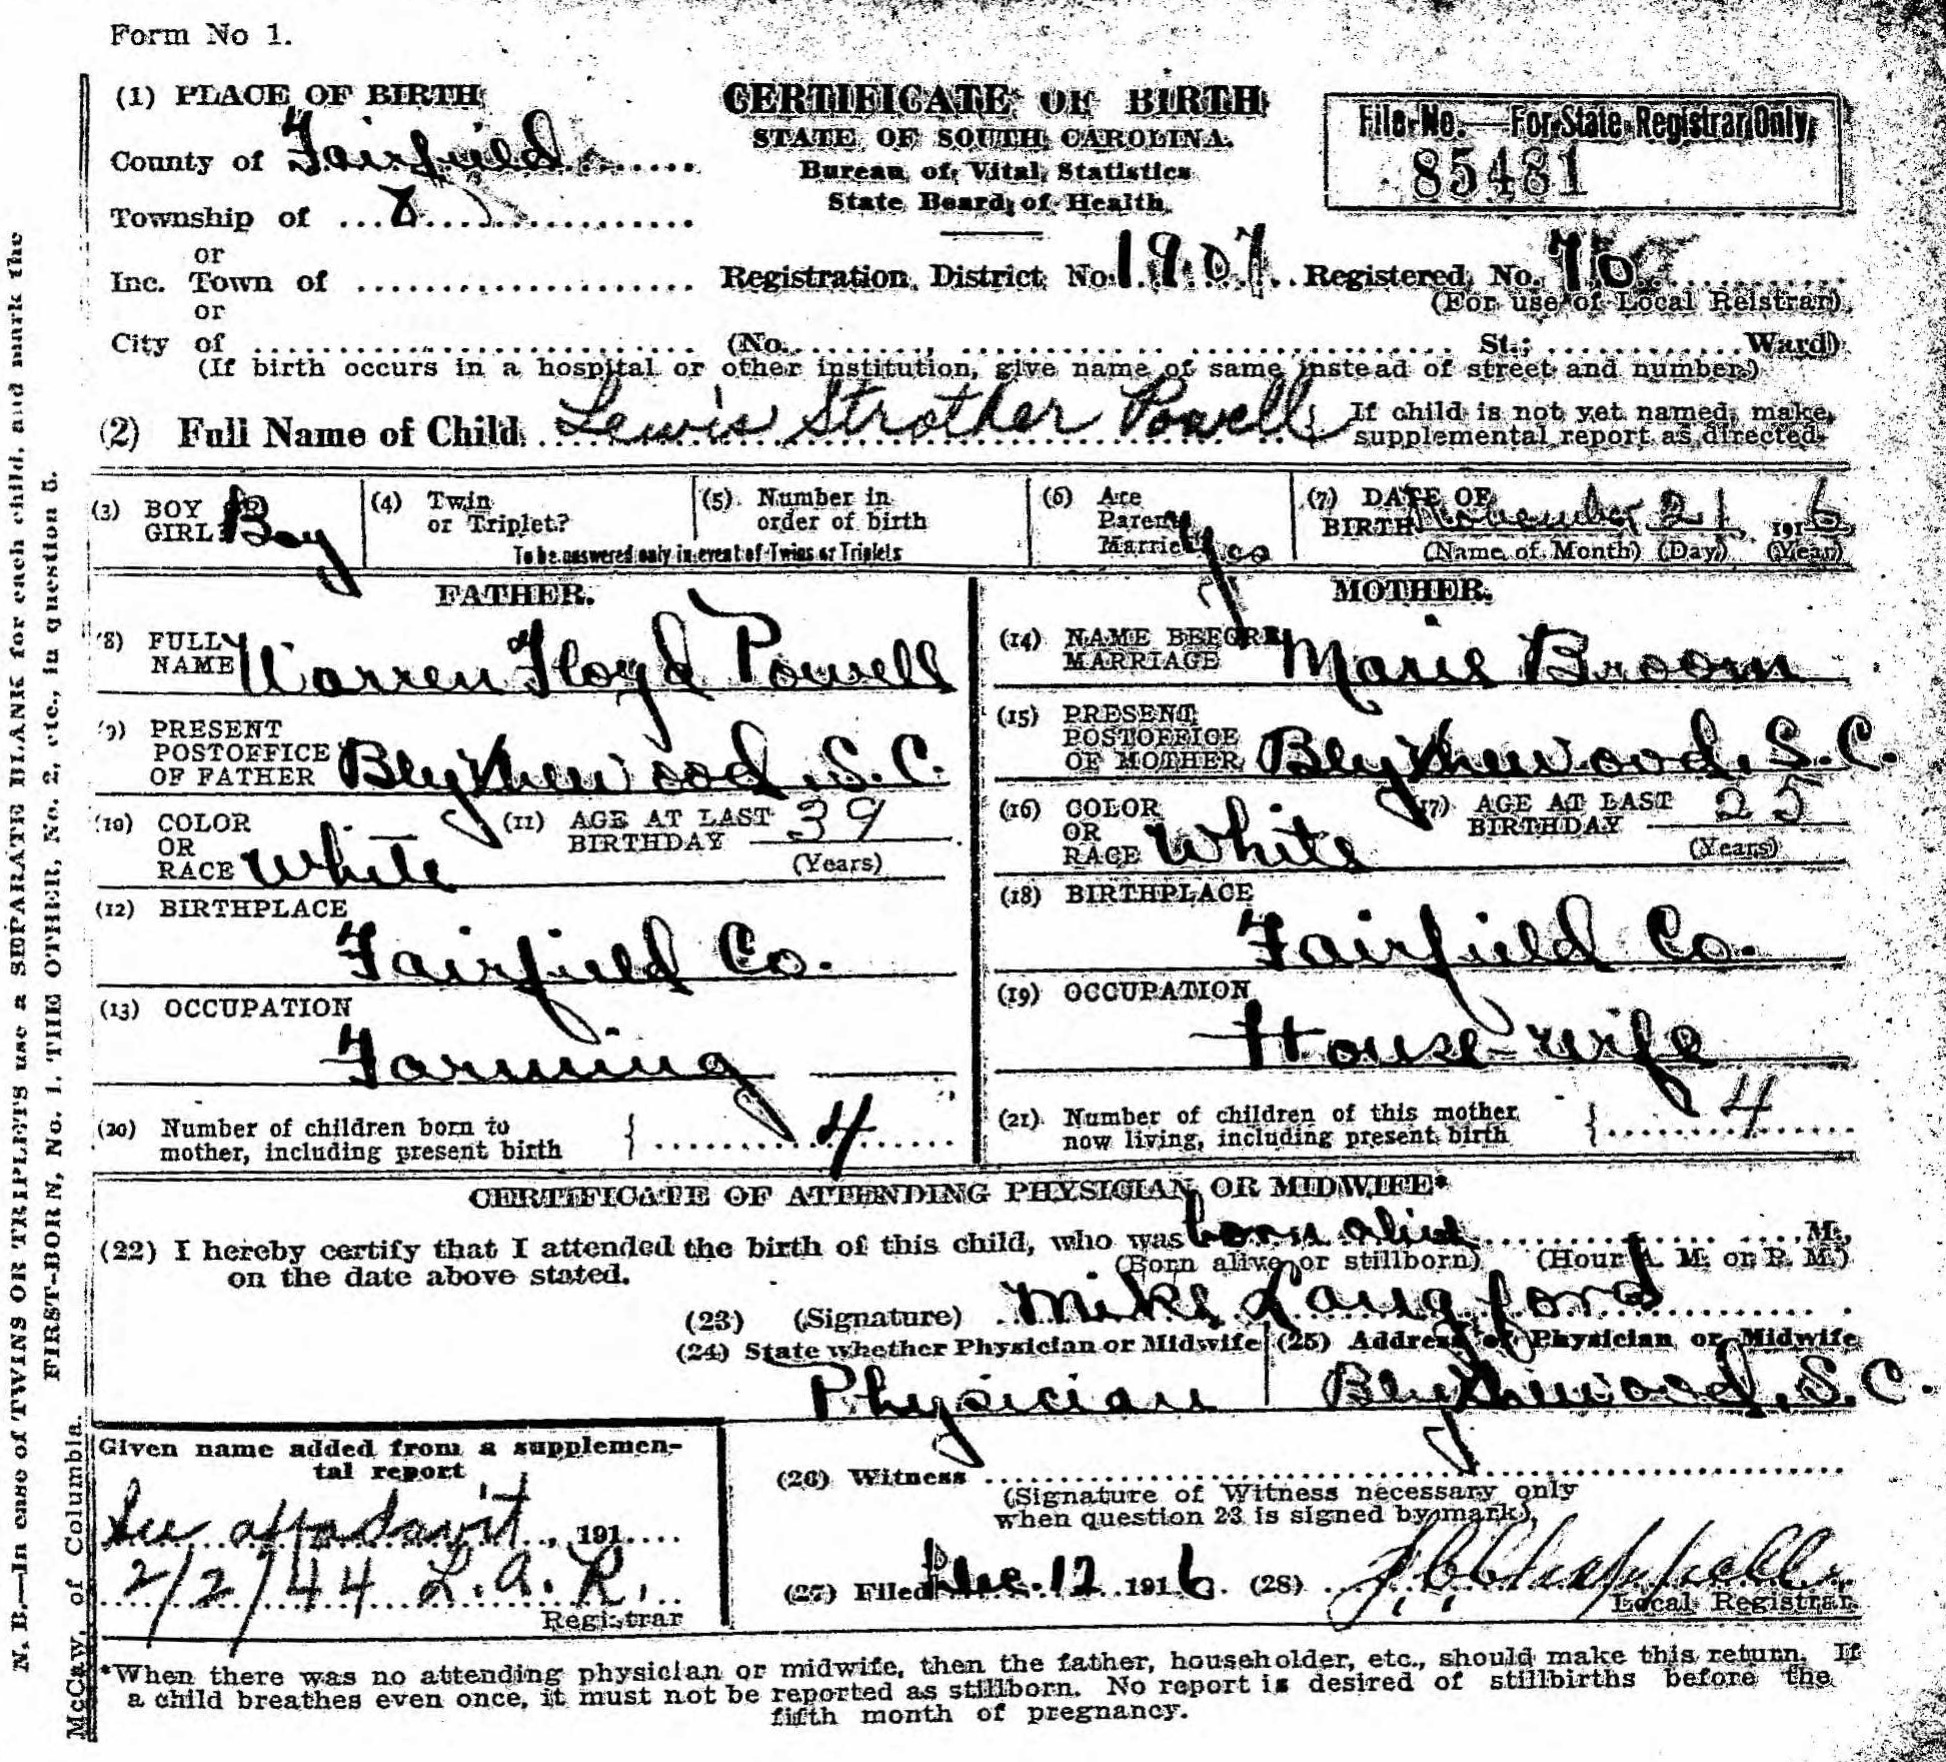 Form No 1.
(1) PLACE OF BIRTH
County of Fairfield
Township of 8
or
Inc. Town of
or
City of
CERTIFICATE OF BIRTH
STATE OF SOUTH CAROLINA.
Bureau of Vital Statistics
State Board of Health
File No.—For State Registrar Only
85481
Registration District No. 1907 Registered No. 70
(For use of Local Reistrar)
(No. St.; Ward)
(If birth occurs in a hospital or other institution, give name of same instead of street and number.)
(2) Full Name of Child Lewis Strother Powell
If child is not yet named, make
supplemental report as directed
(3) BOY
GIRL Boy
(4) Twin
or Triplet?
(5) Number in
order of birth
To be answered only in event of Twins or Triplets
(6) Are
Parents
Married Yes
(7) DATE OF
BIRTH November 21, 1916
(Name of Month) (Day) (Year)
FATHER.
(8) FULL
NAME Warren Floyd Powell
(9) PRESENT
POSTOFFICE
OF FATHER Blythewood, S.C.
(10) COLOR
OR
RACE White
(11) AGE AT LAST
BIRTHDAY 39
(Years)
(12) BIRTHPLACE
Fairfield Co.
(13) OCCUPATION
Farming
(20) Number of children born to
mother, including present birth 4
MOTHER.
(14) NAME BEFORE
MARRIAGE Marie Broom
(15) PRESENT
POSTOFFICE
OF MOTHER Blythewood, S.C.
(16) COLOR
OR
RACE White
(17) AGE AT LAST
BIRTHDAY 25
(Years)
(18) BIRTHPLACE
Fairfield Co.
(19) OCCUPATION
House-wife
(21) Number of children of this mother
now living, including present birth 4
CERTIFICATE OF ATTENDING PHYSICIAN OR MIDWIFE*
(22) I hereby certify that I attended the birth of this child, who was born alive M.,
(Born alive or stillborn) (Hour A. M. or P. M.)
on the date above stated.
(23) (Signature) Mike Langford
(24) State whether Physician or Midwife (25) Address of Physician or Midwife
Physician Blythewood, S.C.
Given name added from a supplemen-
tal report
See affadavit, 191
2/2/44 L.A.R.
Registrar
(26) Witness
(Signature of Witness necessary only
when question 23 is signed by mark).
(27) Filed Dec. 12 1916. (28) J.C. Chappell
Local Registrar.
*When there was no attending physician or midwife, then the father, householder, etc., should make this return. If
a child breathes even once, it must not be reported as stillborn. No report is desired of stillbirths before the
fifth month of pregnancy.
N. B.—In case of TWINS OR TRIPLETS use a SEPARATE BLANK for each child, and mark the
FIRST-BORN, No. 1. THE OTHER, No. 2, etc., in question 5.
McCaw, of Columbia.